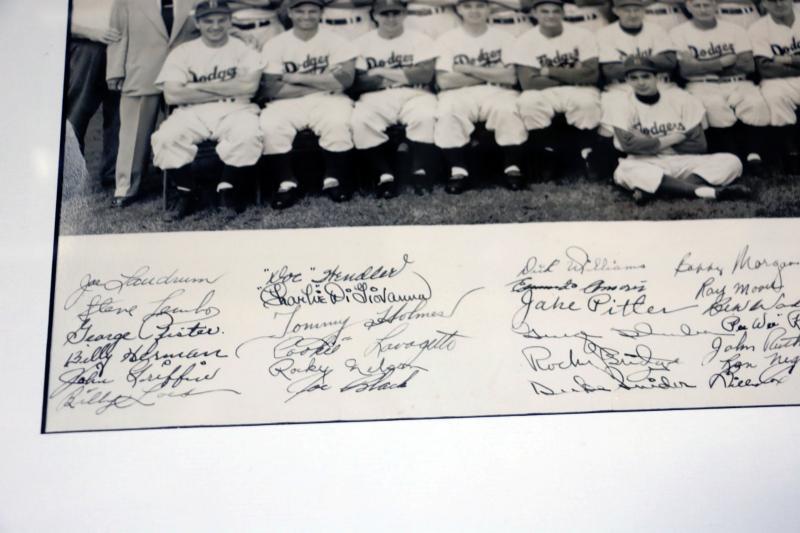 Dodgers
Dodgers
Dodgers
Dodgers
Dodgers
Dodgers
Dodgers
Dodgers
Joe Landrum
Steve Lembo
George Pfister.
Billy Herman
John Griffin
Billy Loes
"Doc" Hendler
Charlie DiGiovanna
Tommy Holmes
"Cookie" Lavagetto
Rocky Nelson
Joe Black
Dick Williams
Edmundo Amoros
Jake Pitler
George Shuba
Rocky Bridges
Duke Snider
Bobby Morgan
Ray Moore
Ben Wade
Pee Wee
John
Billy Cox